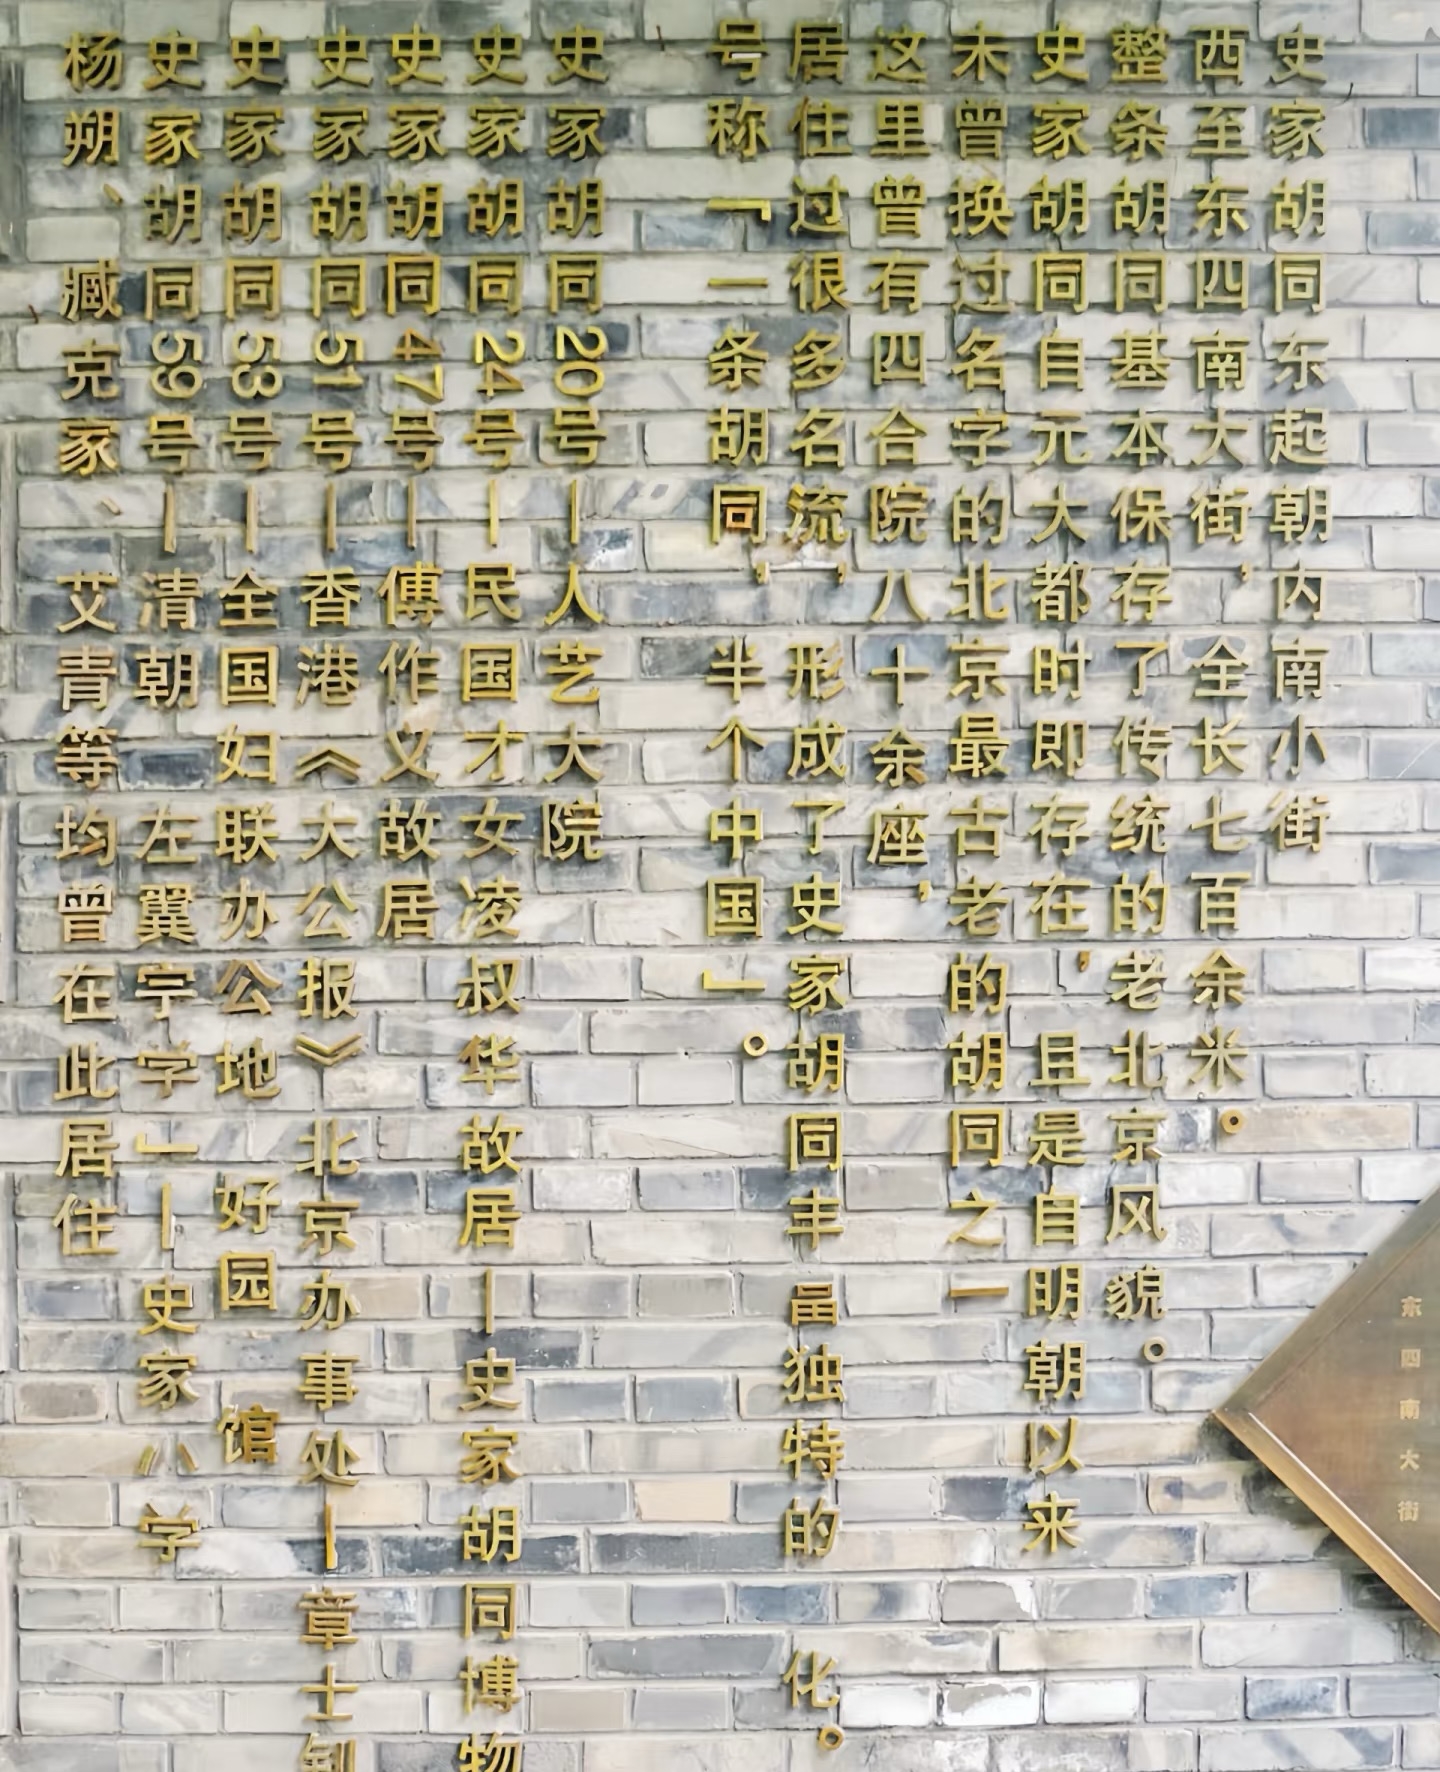 史家胡同东起朝内南小街
西至东四南大街，全长七百余米。
整条胡同基本保存了传统的老北京风貌。
史家胡同自元大都时即存在，且是自明朝以来
未曾换过名字的北京最古老的胡同之一
这里曾有四合院八十余座，
居住过很多名流，形成了史家胡同丰畐独特的 化。
号称「一条胡同，半个中国」。
史家胡同20号—人艺大院
史家胡同24号—民国才女凌叔华故居—史家胡同博物
史家胡同47号—傅作义故居
史家胡同51号—香港《大公报》北京办事处—章士钊
史家胡同53号—全国妇联办公地 好园 馆
史家胡同59号—清朝左翼宗学」—史家小学
杨朔、臧克家、艾青等均曾在此居住
东四南大街